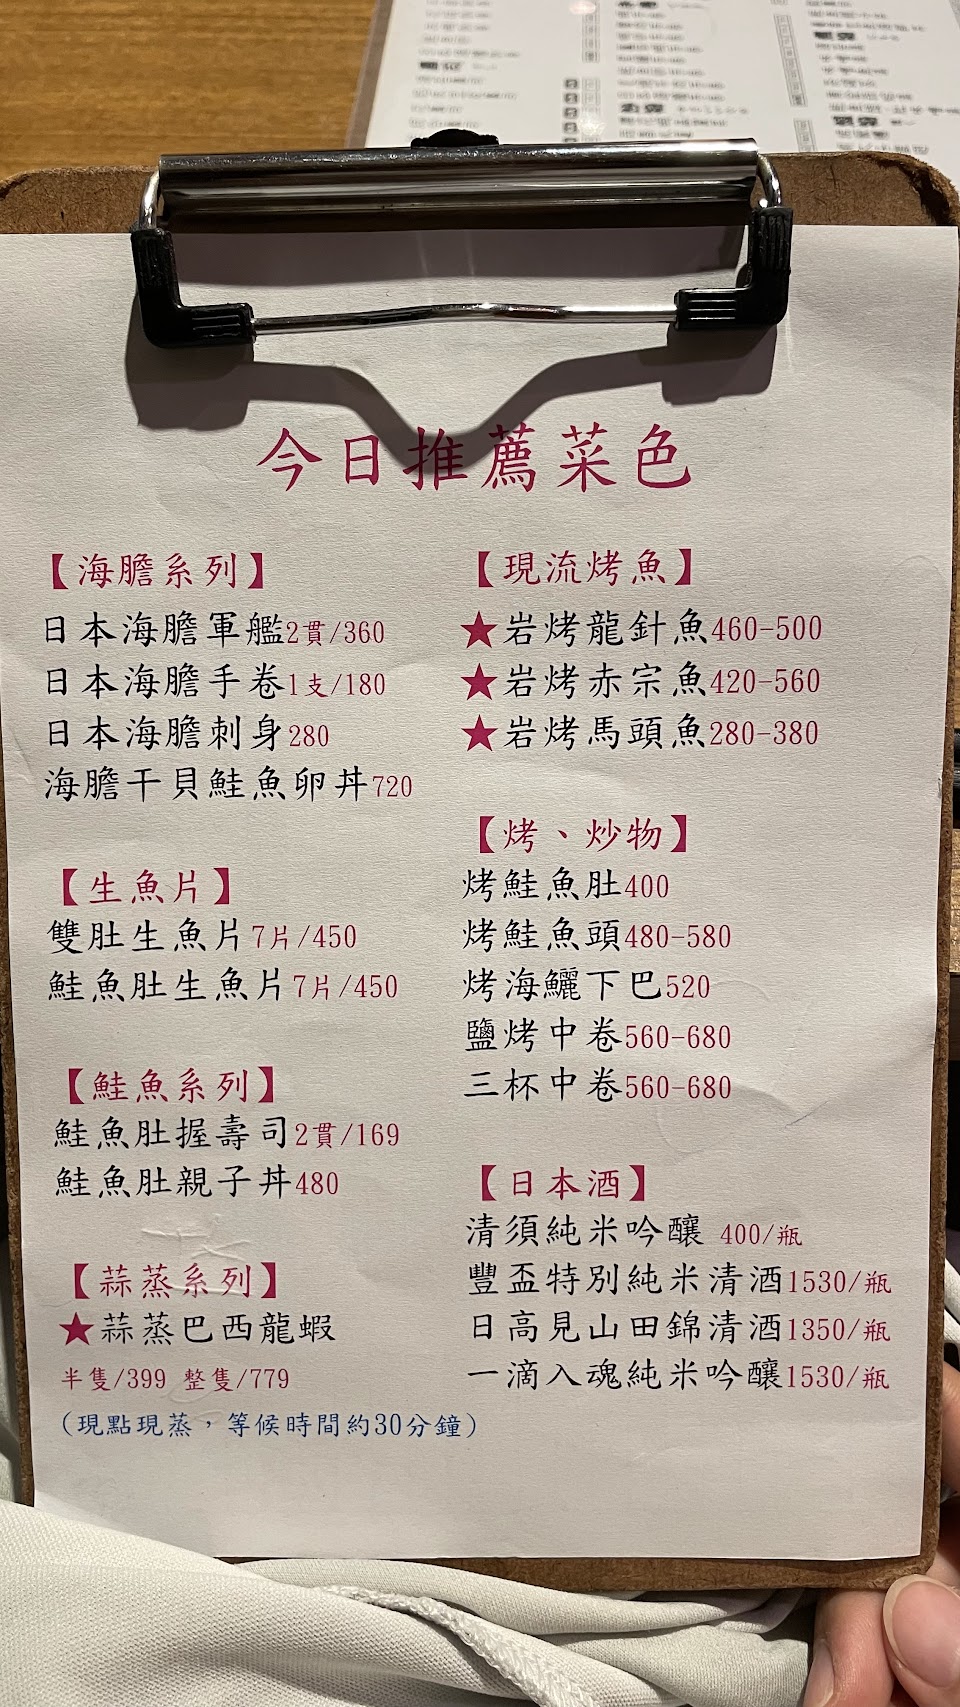 今日推薦菜色
【海膽系列】
日本海膽軍艦2貫/360
日本海膽手卷1支/180
日本海膽刺身280
海膽干貝鮭魚卵丼720
【生魚片】
雙肚生魚片7片/450
鮭魚肚生魚片7片/450
【鮭魚系列】
鮭魚肚握壽司2貫/169
鮭魚肚親子丼480
【蒜蒸系列】
★蒜蒸巴西龍蝦
半隻/399 整隻/779
(現點現蒸，等候時間約30分鐘)
【現流烤魚】
★岩烤龍針魚460-500
★岩烤赤宗魚420-560
★岩烤馬頭魚280-380
【烤、炒物】
烤鮭魚肚400
烤鮭魚頭480-580
烤海鱺下巴520
鹽烤中卷560-680
三杯中卷560-680
【日本酒】
清須純米吟釀 400/瓶
豐盃特別純米清酒1530/瓶
日高見山田錦清酒1350/瓶
一滴入魂純米吟釀1530/瓶